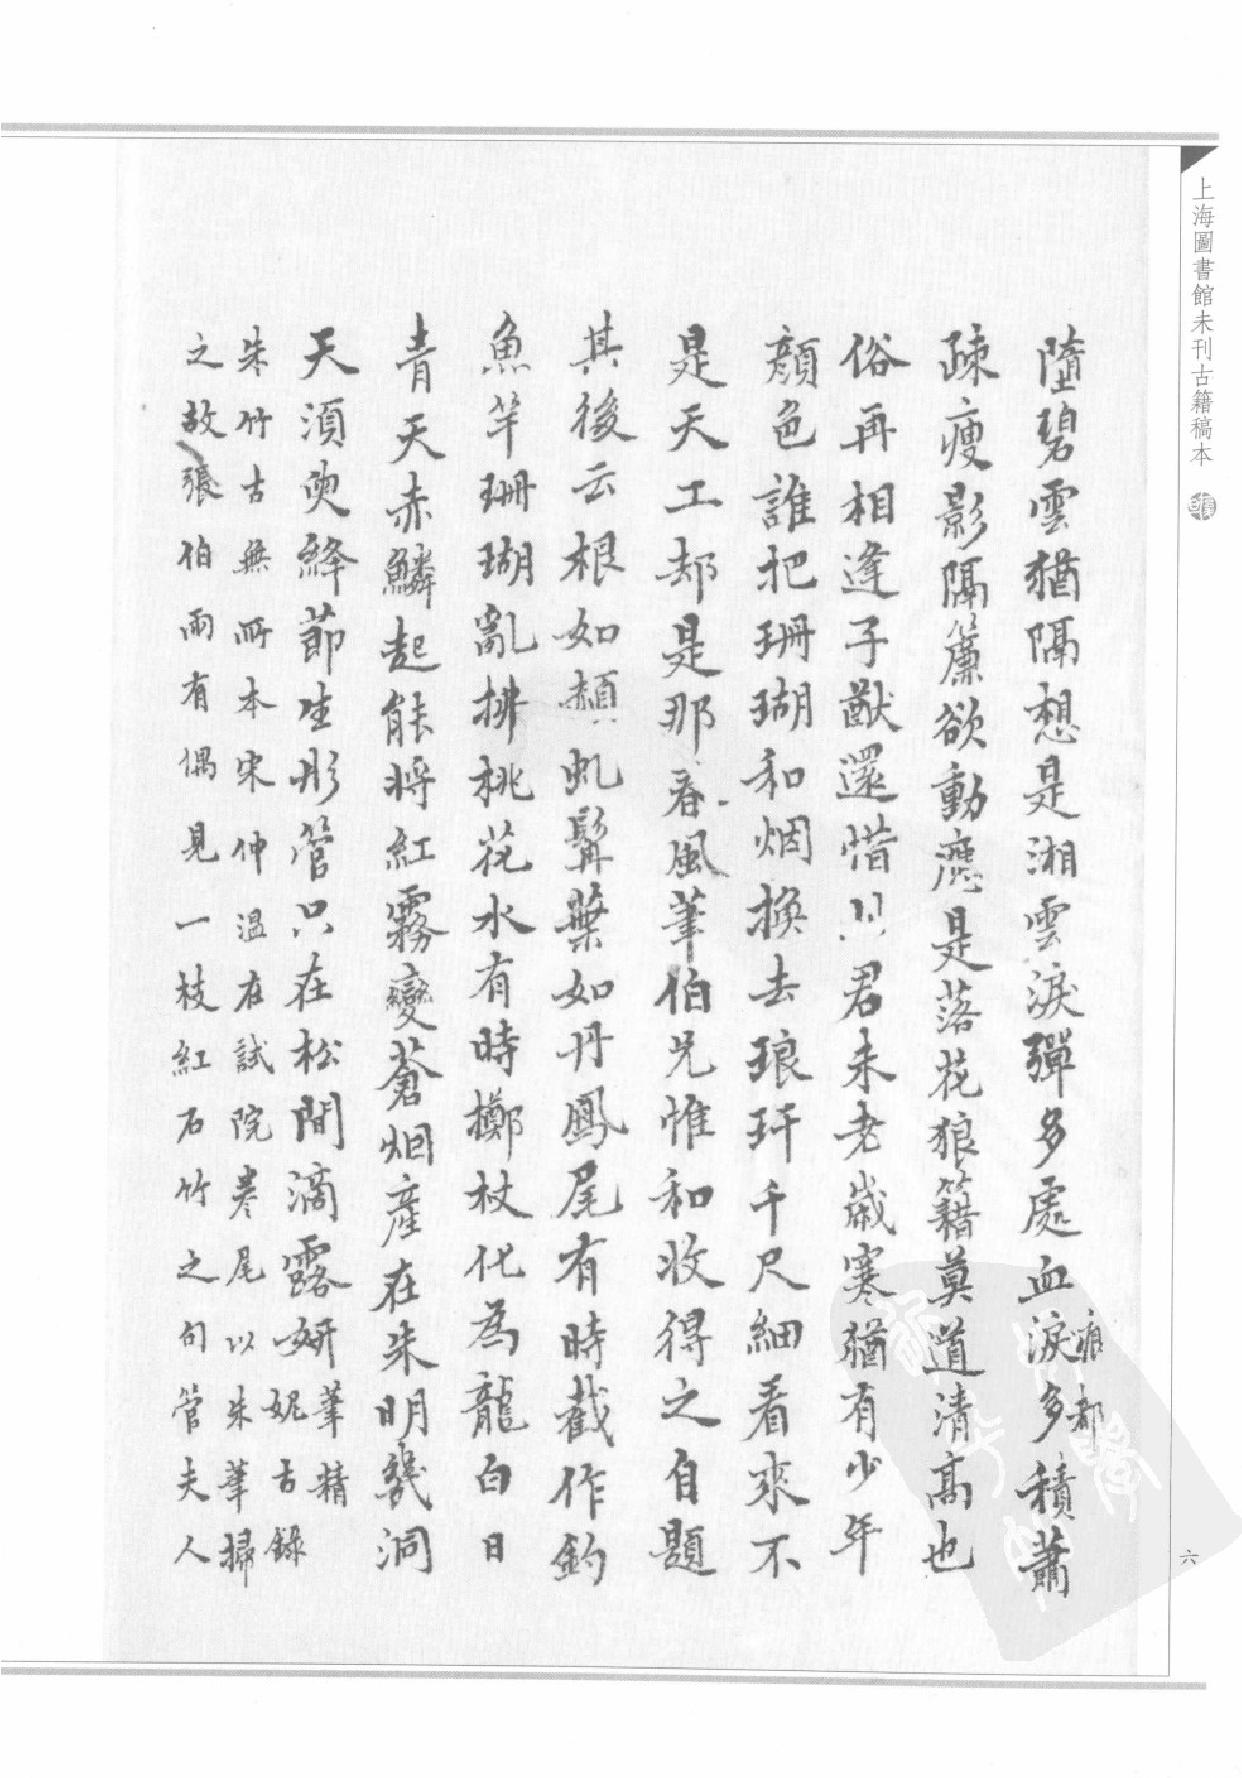 上海圖書館未刊古籍稿本
六
墮碧雲猶隔想是湘雲淚彈多處血淚多積蕭
痕都
疎瘦影隔簾欲動應是落花狼籍莫道清高也
俗再相逢子猷還惜以君未老歲寒猶有少年
顏色誰把珊瑚和烟換去琅玕千尺細看來不
是天工却是那春風筆伯兄惟和收得之自題
其後云根如赬虬髯葉如丹鳳尾有時截作釣
魚竿珊瑚亂拂桃花水有時擲杖化為龍白日
青天赤鱗起能將紅霧變蒼烟產在朱明幾洞
天須臾絳節生彤管只在松間滴露妍
筆精
妮古錄
朱竹古無所本宋仲溫在試院卷尾以朱筆掃
之故張伯雨有偶見一枝紅石竹之句管夫人